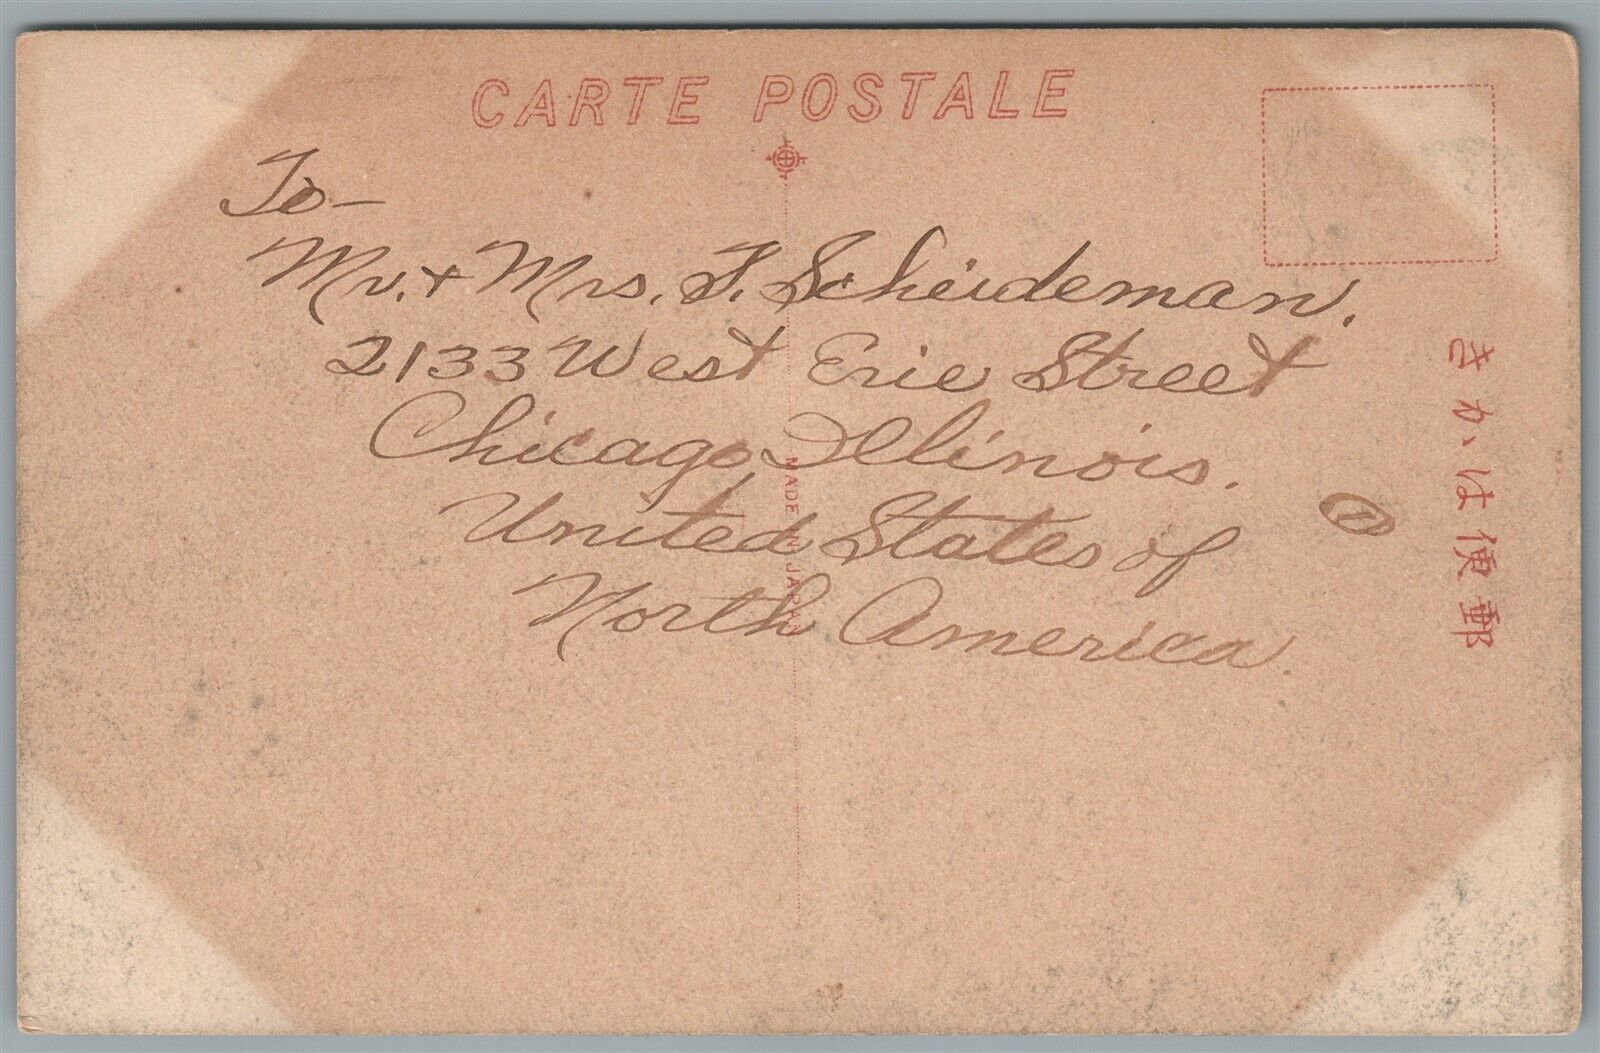 CARTE POSTALE
To—
Mr. + Mrs. F. Scheideman.
2133 West Erie Street
Chicago, Illinois.
United States of
North America.
MADE IN JAPAN
きかは便郵